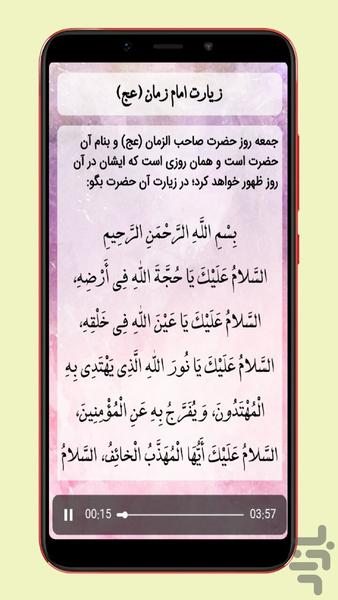 زیارت امام زمان (عج)
جمعه روز حضرت صاحب الزمان (عج) و بنام آن
حضرت است و همان روزی است که ایشان در آن
روز ظهور خواهد کرد؛ در زیارت آن حضرت بگو:
بِسْمِ اللَّهِ الرَّحْمَنِ الرَّحِيمِ
السَّلامُ عَلَيْكَ يَا حُجَّةَ اللَّهِ فِي أَرْضِهِ،
السَّلامُ عَلَيْكَ يَا عَيْنَ اللَّهِ فِي خَلْقِهِ،
السَّلامُ عَلَيْكَ يَا نُورَ اللَّهِ الَّذِي يَهْتَدِي بِهِ
الْمُهْتَدُونَ، وَ يُفَرَّجُ بِهِ عَنِ الْمُؤْمِنِينَ،
السَّلامُ عَلَيْكَ أَيُّهَا الْمُهَذَّبُ الْخَائِفُ، السَّلامُ
00:15 03:57
بازار